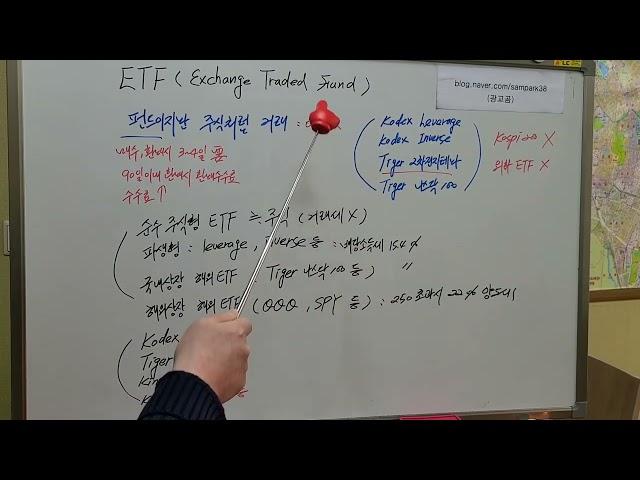 ETF ( Exchange Traded Fund )
blog.naver.com/sampark38
(광고곰)
펀드이지만 주식처럼 거래 :
매수, 환매시 3~4일 要
90일이내 환매시 환매수수료
수수료 ↑
Kodex Leverage
Kodex Inverse
Tiger 2차전지테마
Tiger 나스닥 100
Kospi200 X
외화 ETF X
순수 주식형 ETF ≒ 주식 ( 거래세 X )
파생형 : Leverage , Inverse 등 : 배당소득세 15.4 %
국내상장 해외 ETF : Tiger 나스닥 100 등 ) "
해외상장 해외 ETF ( QQQ , SPY 등 ) : 250 초과시 22 % 양도세
Kodex
Tiger